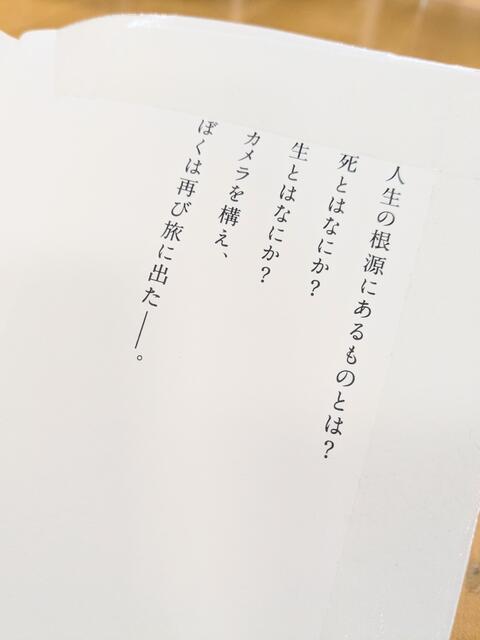 人生の根源にあるものとは？
死とはなにか？
生とはなにか？
カメラを構え、
ぼくは再び旅に出た――。